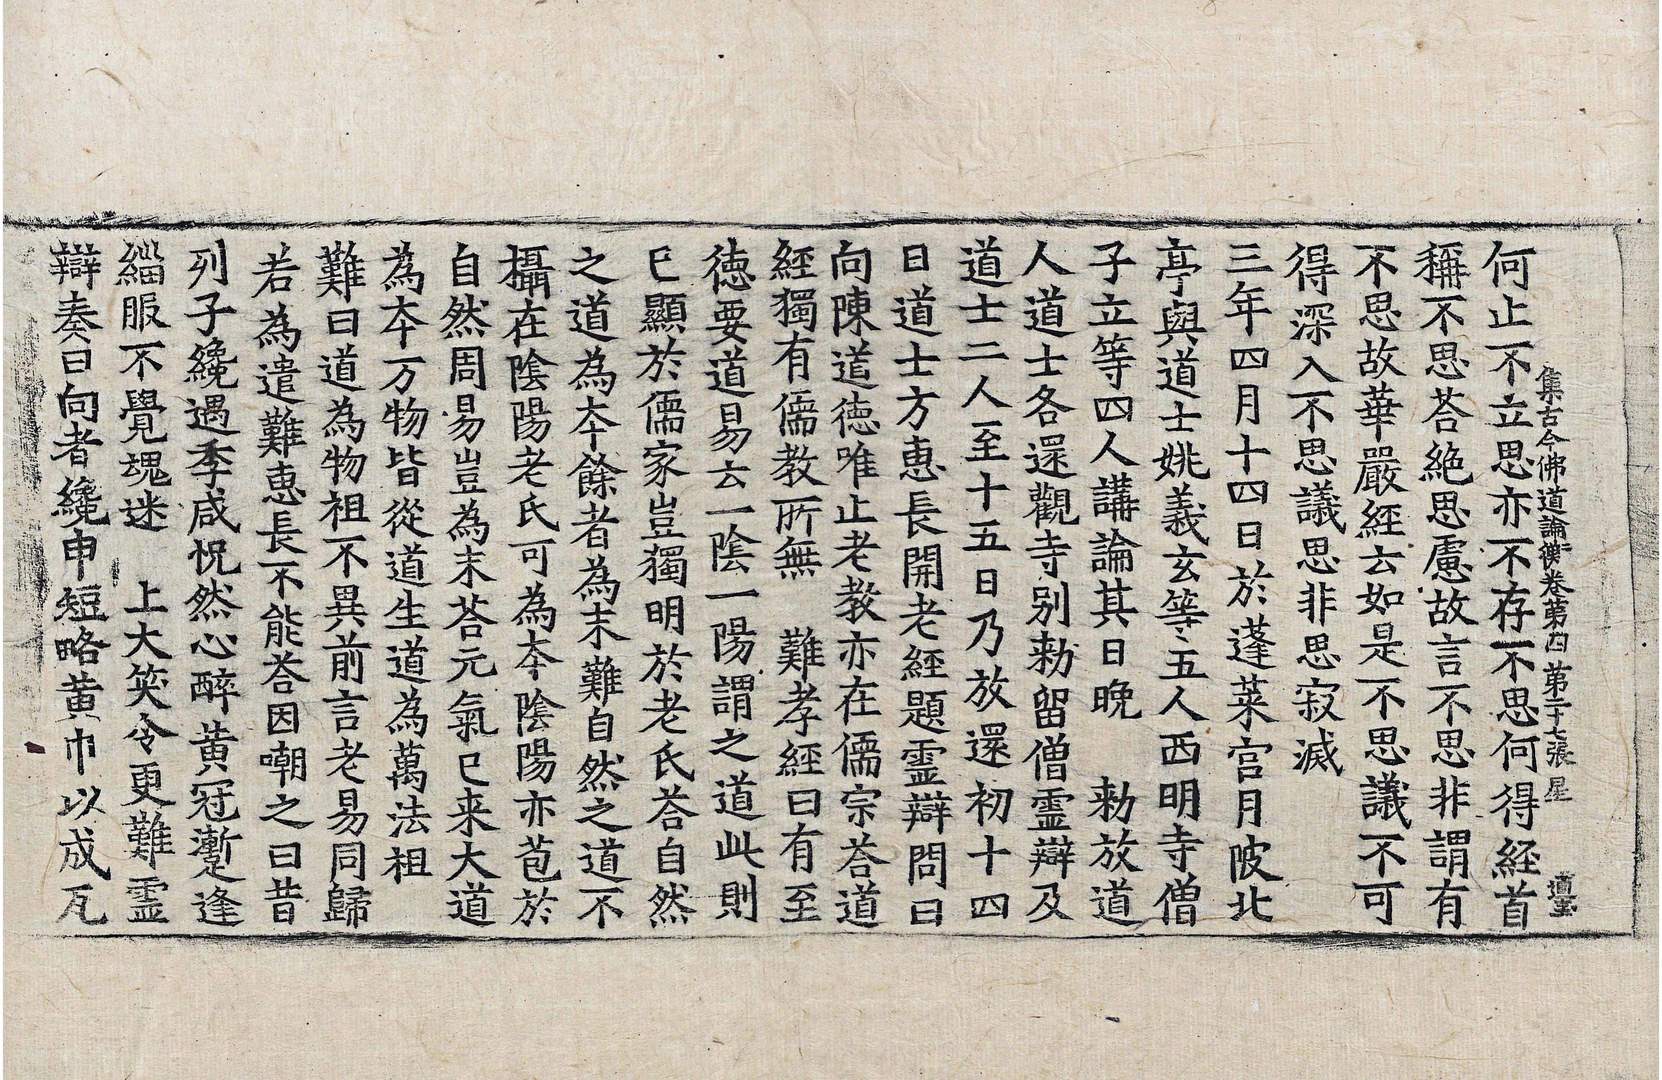 集古今佛道論衡卷第四 第二十七張 星
何止不立思亦不存不思何得經首
稱不思荅絶思慮故言不思非謂有
不思故華嚴經云如是不思議不可
得深入不思議思非思寂滅
三年四月十四日於蓬萊宫月陂北
亭與道士姚義玄等五人西明寺僧
子立等四人講論其日晚 勑放道
人道士各還觀寺别勑留僧靈辯及
道士二人至十五日乃放還初十四
日道士方惠長開老經題靈辯問曰
向陳道徳唯止老教亦在儒宗荅道
經獨有儒教所無 難孝經曰有至
徳要道易云一陰一陽謂之道此則
已顯於儒家豈獨明於老氏荅自然
之道為夲餘者為末難自然之道不
攝在陰陽老氏可為夲陰陽亦苞於
自然周易豈為末荅元氣已来大道
為夲万物皆從道生道為萬法祖
難曰道為物祖不異前言老易同歸
若為遣難惠長不能荅因嘲之曰昔
列子纔遇季咸怳然心醉黄冠蹔逢
緇服不覺魂迷 上大笑令更難靈
辯奏曰向者纔申短略黄巾以成瓦